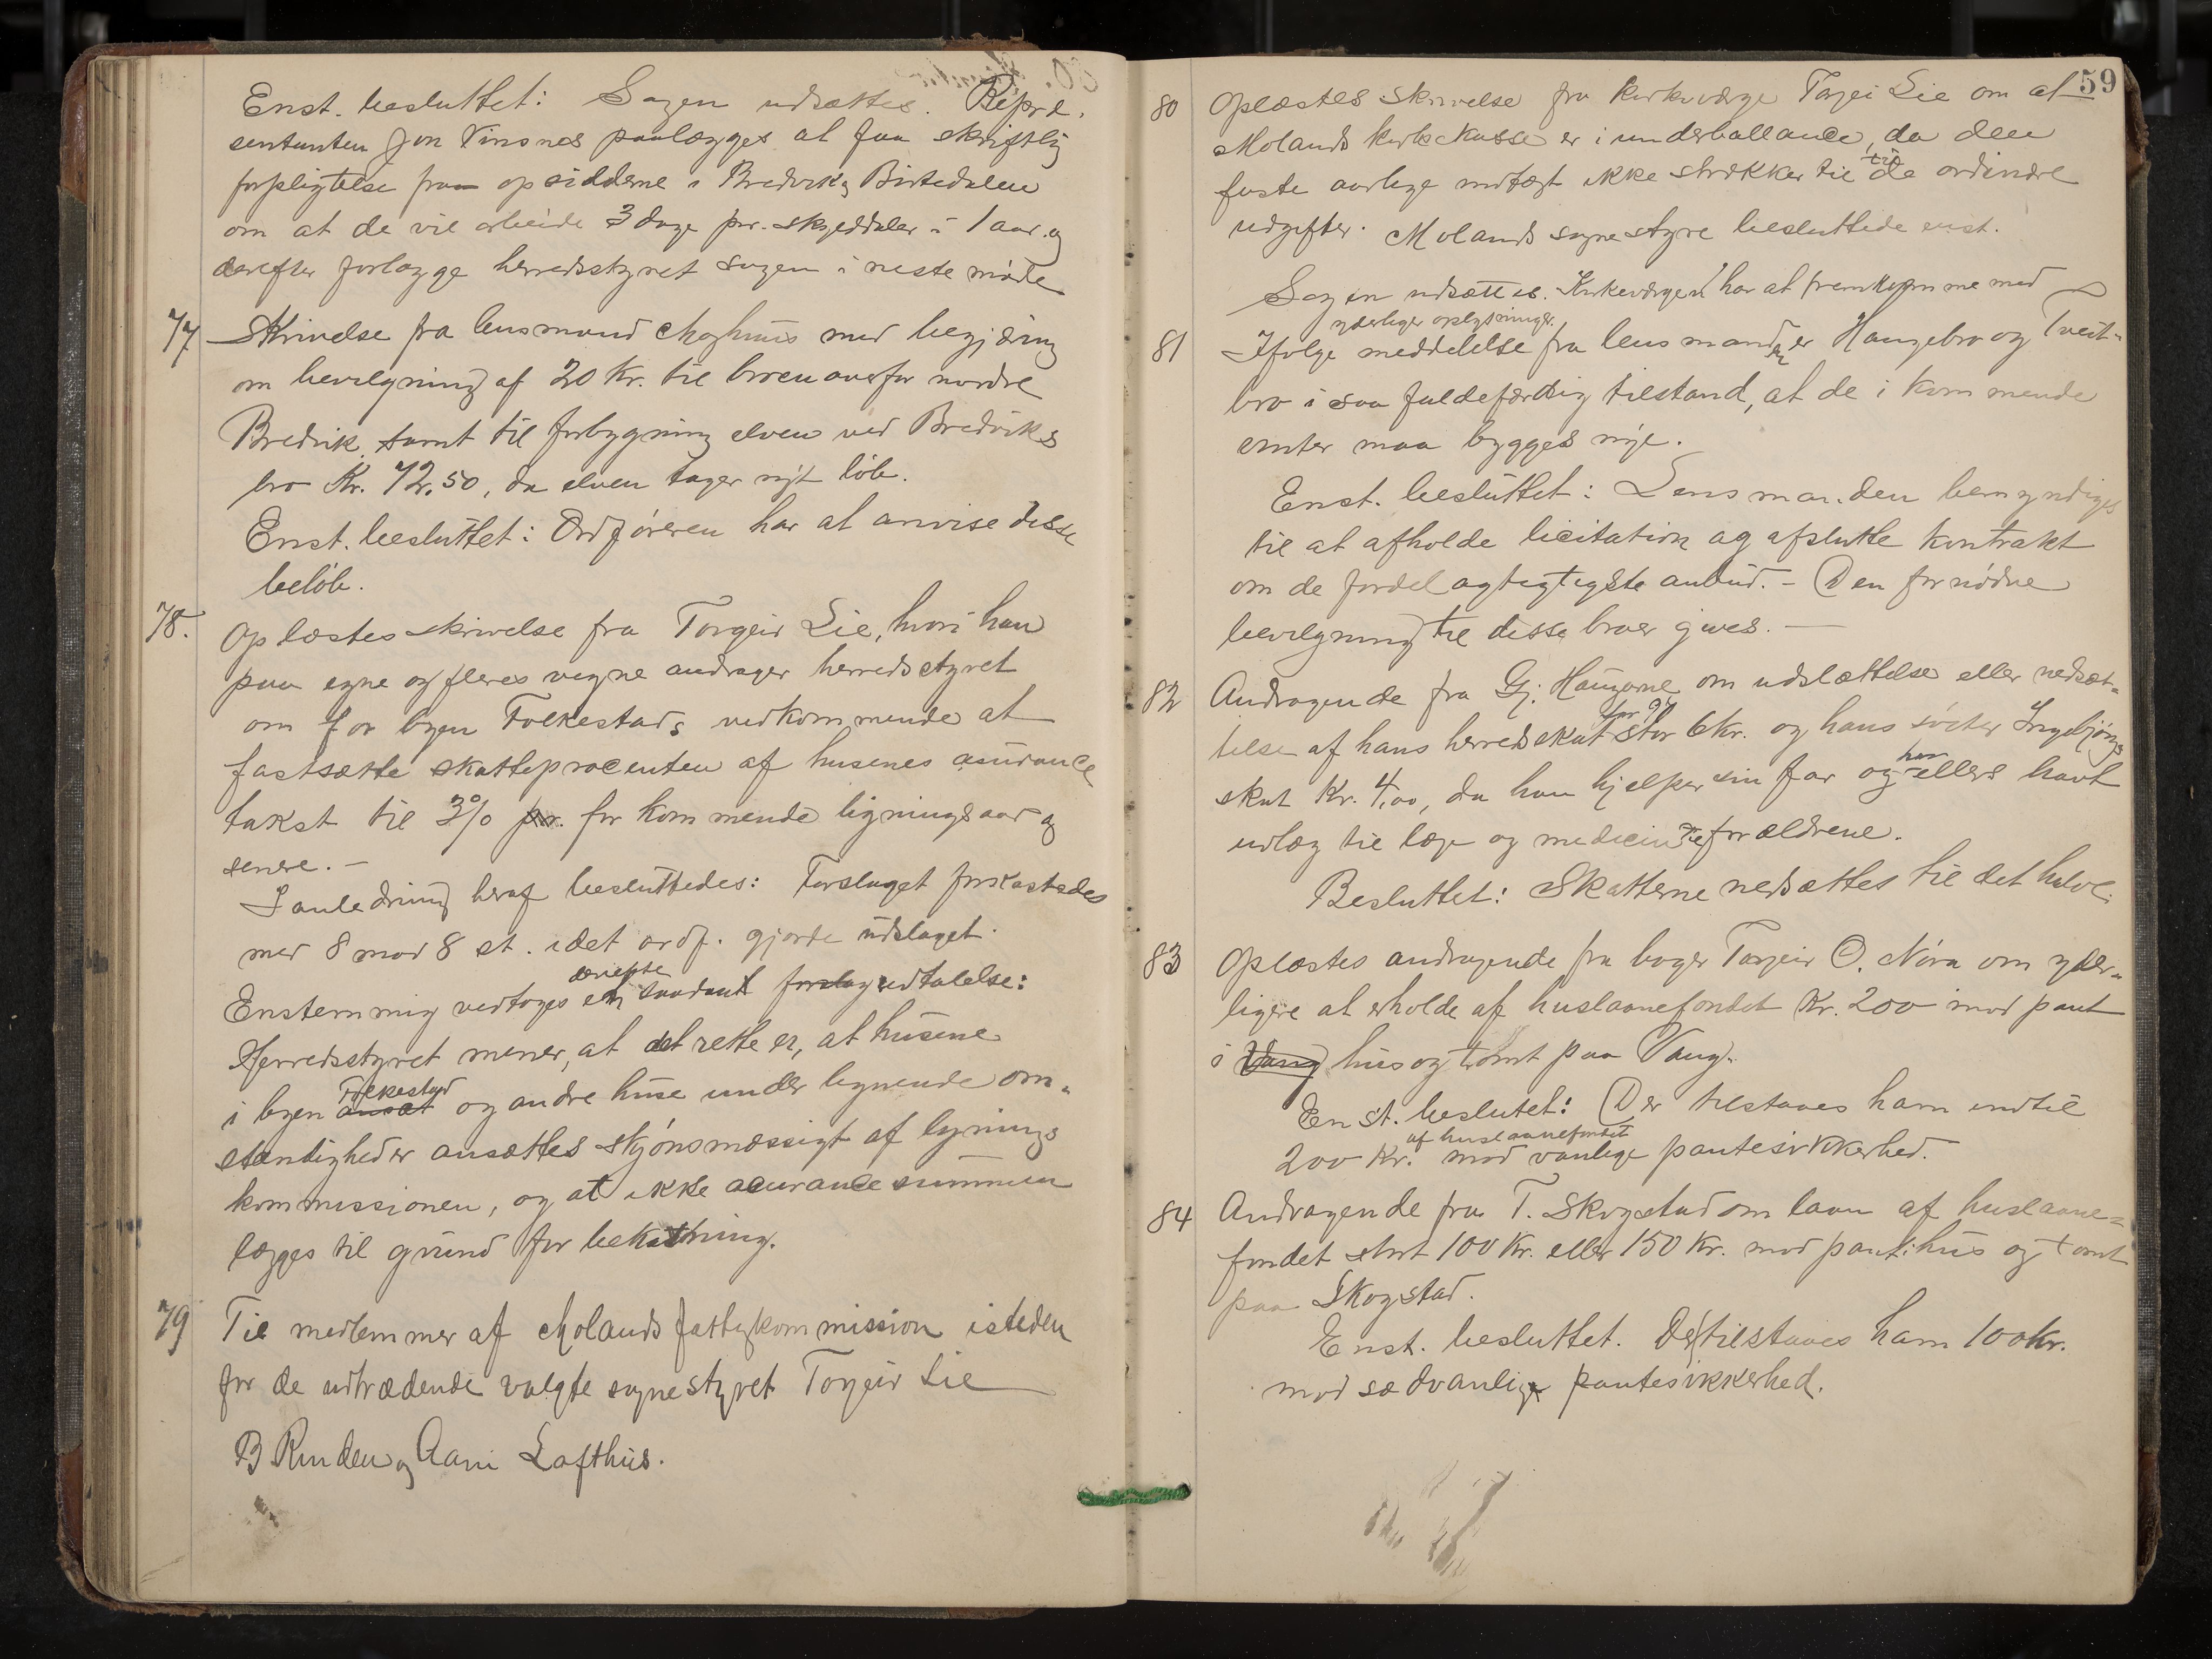 Enst. besluttet: Sagen udsættes. Repræ.
sentanten Jon Vinsnes paalægges at faa skriftlig
forpligtelse fra opsidderne i Bredvik og Birtedalen
om at de vil arbeide 3 dage pr. skylddaler i 1 aar og
derefter forlægge herredsstyret sagen i neste møde
77 Skrivelse fra lensmand Moghuus med begjæring
om bevilgning af 20 Kr. til broen overfor nordre
Bredvik, samt til forbygning elven ved Bredviks
bro Kr. 72.50, da elven tager nyt løb.
Enst. besluttet: Ordføreren har at anvise disse
beløb.
78. Oplæstes skrivelse fra Torgeir Lie, hvori han
paa egne og fleres vegne andrager herredsstyret
om for byen Folkestads vedkommende at
fastsætte skatteprocenten af husenes asurance
takst til 3% pr. for kommende ligningsaar og
senere. —
I anledning heraf besluttedes: Forslaget forkastedes
med 8 mod 8 st. idet ordf. gjorde udslaget.
Enstemmig vedtoges en saadant forslag udtalelse:
Herredsstyret mener, at det rette er, at husene
Folkestad
i byen ansat og andre huse under lignende om-
stændigheder ansættes skjønsmæssigt af lignings
kommissionen, og at ikke acurance summen
lægges til grund for beskatning.
79 Til medlemmer af Molands fattigkommission isteden
for de udtrædende valgte sognestyret Torgeir Lie
B Rinden og Aani Lofthus.
59
80 Oplæstes skrivelse fra kirkeværge Torgei Lie om at
Molands kirkekasse er i underballance, da den
faste aarlige indtægt ikke strækker til til de ordinære
udgifter. Molands sognestyre besluttede enst.
Sagen udsættes. Kirkeværgen har at fremkomme med
yderliger oplysninger.
81 Ifølge meddelelse fra lensmanden er Haugebro og Tveit-
bro i saa fuldefærdig tilstand, at de i kommende
vinter maa bygges nye.
Enst. besluttet: Lensmanden bemyndiges
til at afholde licitation og afslutte kontrakt
om de fordelagtigtigste anbud. – Den fornødne
bevilgning til disse broer gives. —
82 Andragende fra Gj. Haugerne om udslættelse eller nedsæt-
for 97
telse af hans herredsskat stor 6 kr. og hans søster Ingebjørgs
har
skat Kr. 4,00, da han hjelper sin far og ellers havt
udlæg til læge og medicin til forældrene.
Besluttet: Skatterne nedsættes til det halve.
83 Oplæstes andragende fra bager Torgeir O. Nøra om yder-
ligere at erholde af huslaanefondet Kr. 200 mod pant
i Vang hus og tomt paa Vang.
Enst. beslutet: Der tilstaaes ham indtil
af huslaanefondet
200 Kr. mod vanlige pantesikkerhed.
84 Andragende fra T. Skogstad om laan af huslaane-
fondet stort 100 Kr. eller 150 Kr. mod pant i hus og tomt
paa Skogstad.
Enst. besluttet. Der tilstaaes ham 100 kr.
mod sædvanlige pantesikkerhed.